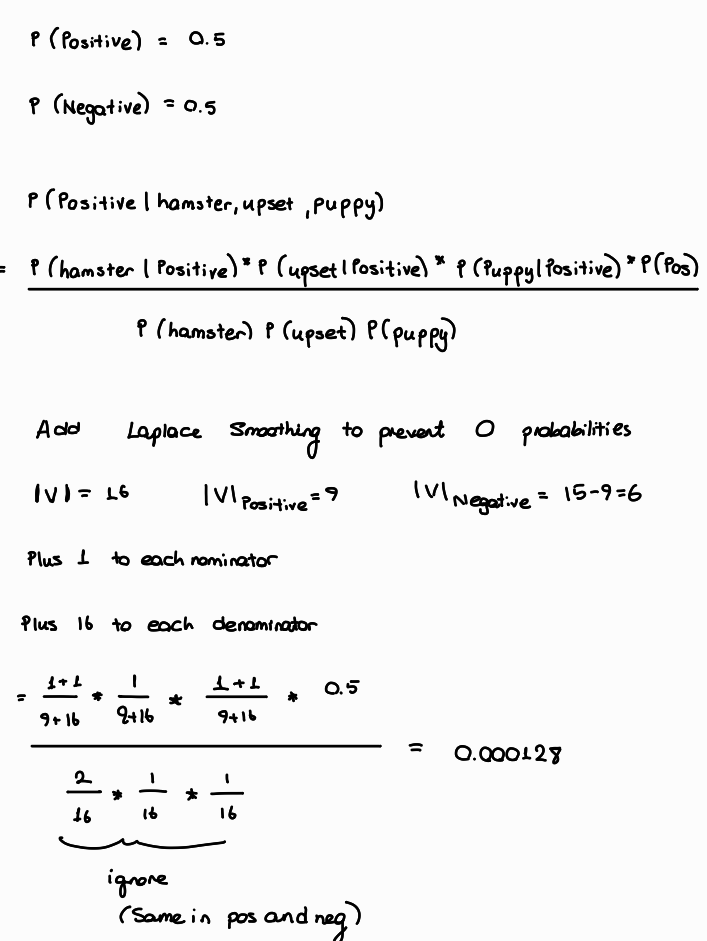 P (Positive) = 0.5
P (Negative) = 0.5
P (Positive | hamster, upset, puppy)
= P (hamster | Positive) * P (upset | Positive) * P (Puppy | Positive) * P(Pos)
P (hamster) P (upset) P (puppy)
Add Laplace Smoothing to prevent 0 probabilities
|V| = 16 |V| Positive = 9 |V| Negative = 15-9=6
Plus 1 to each nominator
Plus 16 to each denominator
= 1+1/9+16 * 1/9+16 * 1+1/9+16 * 0.5
= 0.000128
2/16 * 1/16 * 1/16
ignore
(Same in pos and neg)